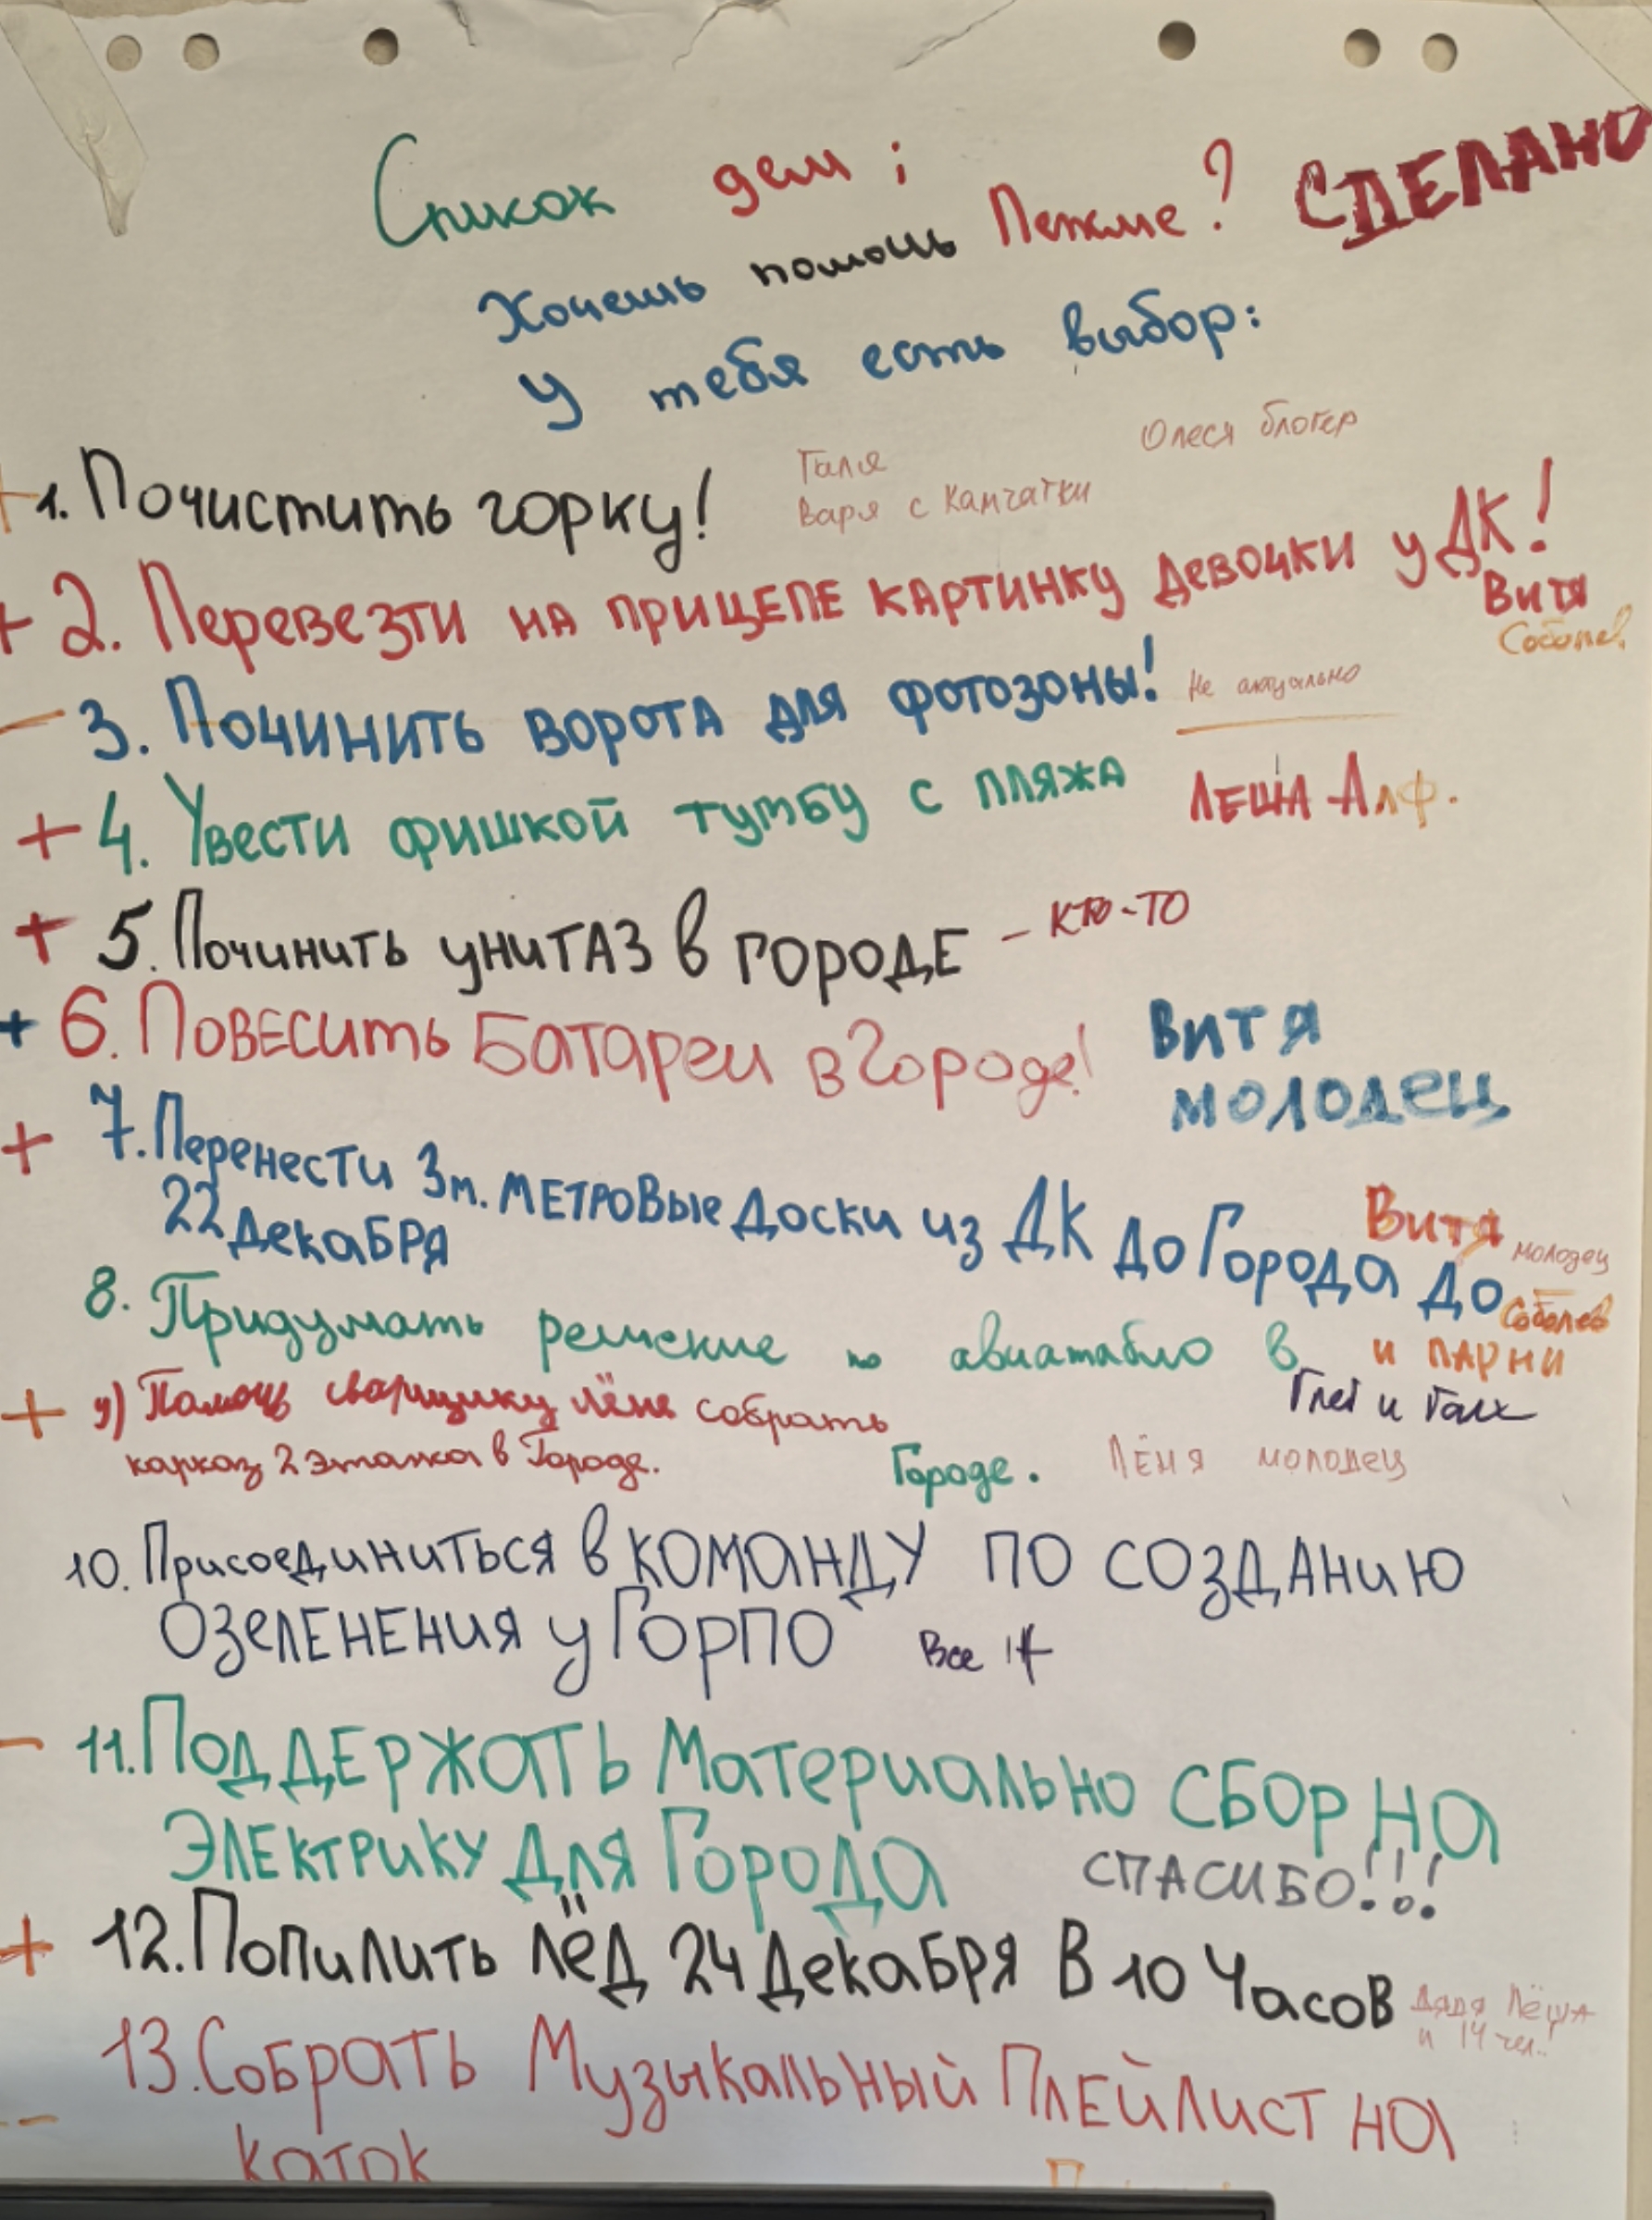 Список дел:
Хочешь помощь Пежме? СДЕЛАНО
У тебя есть выбор:
Олеся блогер
Галя
Варя с Камчатки
+ 1. Почистить горку!
+ 2. Перевезти на прицепе картинку девочки у ДК!
Витя
Соболев
- 3. Починить ворота для фотозоны! Не актуально
+ 4. Увести фишкой тумбу с пляжа ЛЕША Алф.
+ 5. Починить унитаз в городе - кто-то
+ 6. Повесить Батареи в Городе! Витя
молодец
+ 7. Перенести 3м. метровые доски из ДК до Города до
22 декабря
Витя молодец
Соболев
и парни
8. Придумать решение по авиатабло в
Городе.
Глеб и
+ 9) Помочь сварщику Лёне собрать
карказ 2 этажа в Городе.
Лёня молодец
10. Присоединиться в команду по созданию
Озеленения у Горпо Все
- 11. Поддержать Материально сбор на
Электрику для Города СПАСИБО!!!
+ 12. Попилить лёд 24 декабря в 10 часов
дядя Лёша
и 14 чел.!
- 13. Собрать Музыкальный Плейлист на
каток